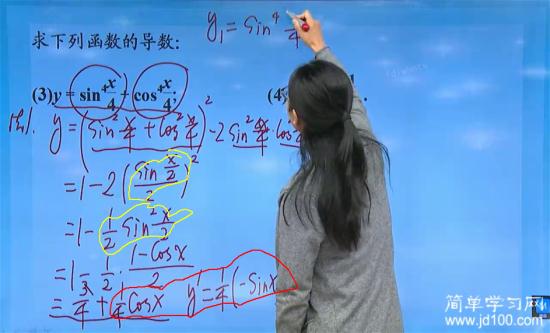 y₁ = sin⁴ x/4
求下列函数的导数:
(3) y = sin⁴ x/4 + cos⁴ x/4; (4)
y = (sin² x/4 + cos² x/4)² - 2 sin² x/4 · cos²
= 1 - 2 (sin x/2 / 2)²
= 1 - 1/2 sin² x/2
= 1 - 1/2 · (1 - cos x)/2
= 3/4 + 1/4 cos x y' = 1/4 (- sin x
简单学习网
www.jd100.com